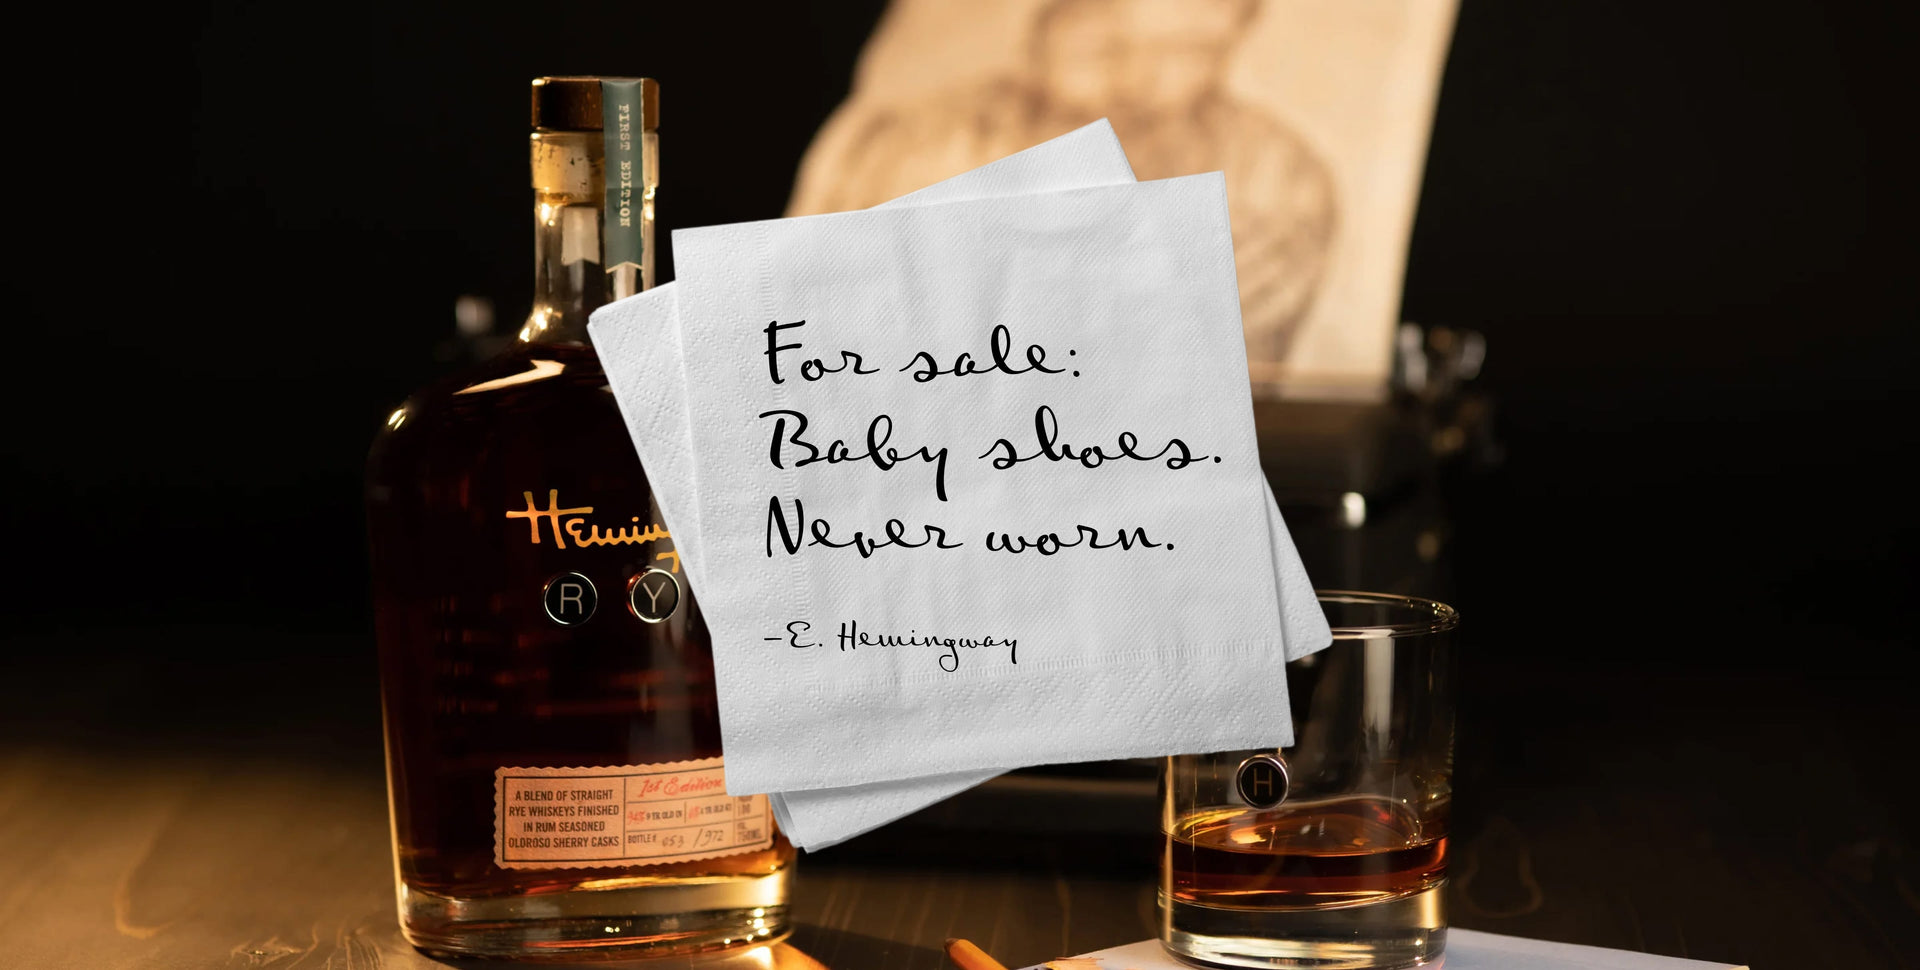 FIRST EDITION
For sale:
Baby shoes.
Never worn.
-E. Hemingway
Heming
R Y
A BLEND OF STRAIGHT
RYE WHISKEYS FINISHED
IN RUM SEASONED
OLOROSO SHERRY CASKS
1st Edition
9 YR OLD
BOTTLE# 053 /972
H